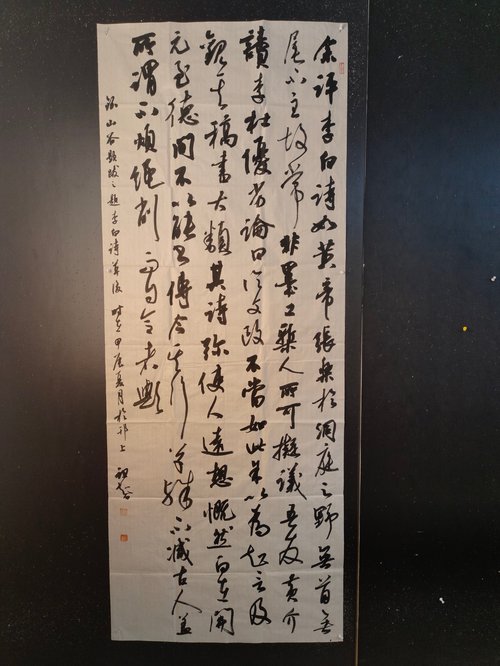 余評李白詩如黄帝張樂於洞庭之野無首無
尾不主故常非墨工槧人所可擬議吾友黄介
讀李杜優劣論曰論文政不當如此余以為知言及
觀其稿書大類其詩弥使人遠想慨然白在開
元至德間不以能書傳今其行草殊不減古人蓋
所謂不煩繩削而自合者歟
録山谷題跋之題李白詩草後 時在甲辰夏月於邗上